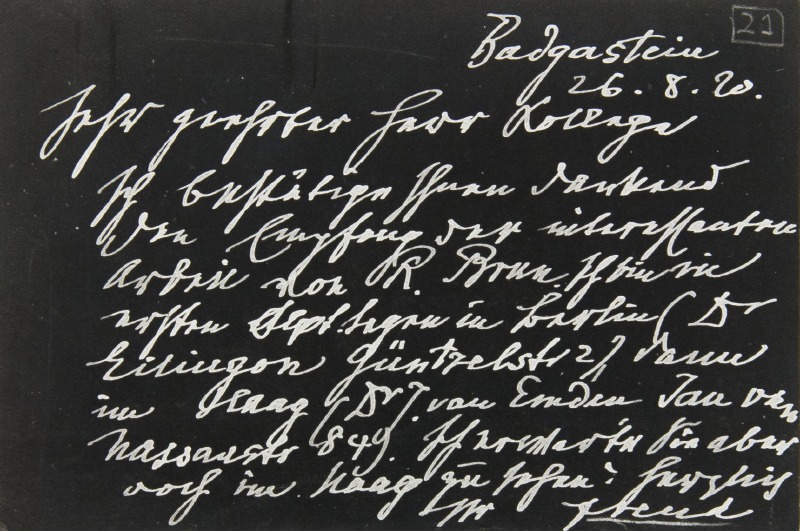 21
Badgastein
26. 8. 20.
Sehr geehrter Herr Kollege
Ich bestätige Ihnen dankend
den Empfang der interessanten
Arbeit von R. Brun. Ich bin in
ersten Sept.tagen in Berlin (Dr
Eitingon Güntzelstr 2), dann
im Haag (Dr J. van Emden Jan van
Nassaustr 84). Ich erwarte Sie aber
noch im Haag zu sehen? Herzlich
Ihr Freud